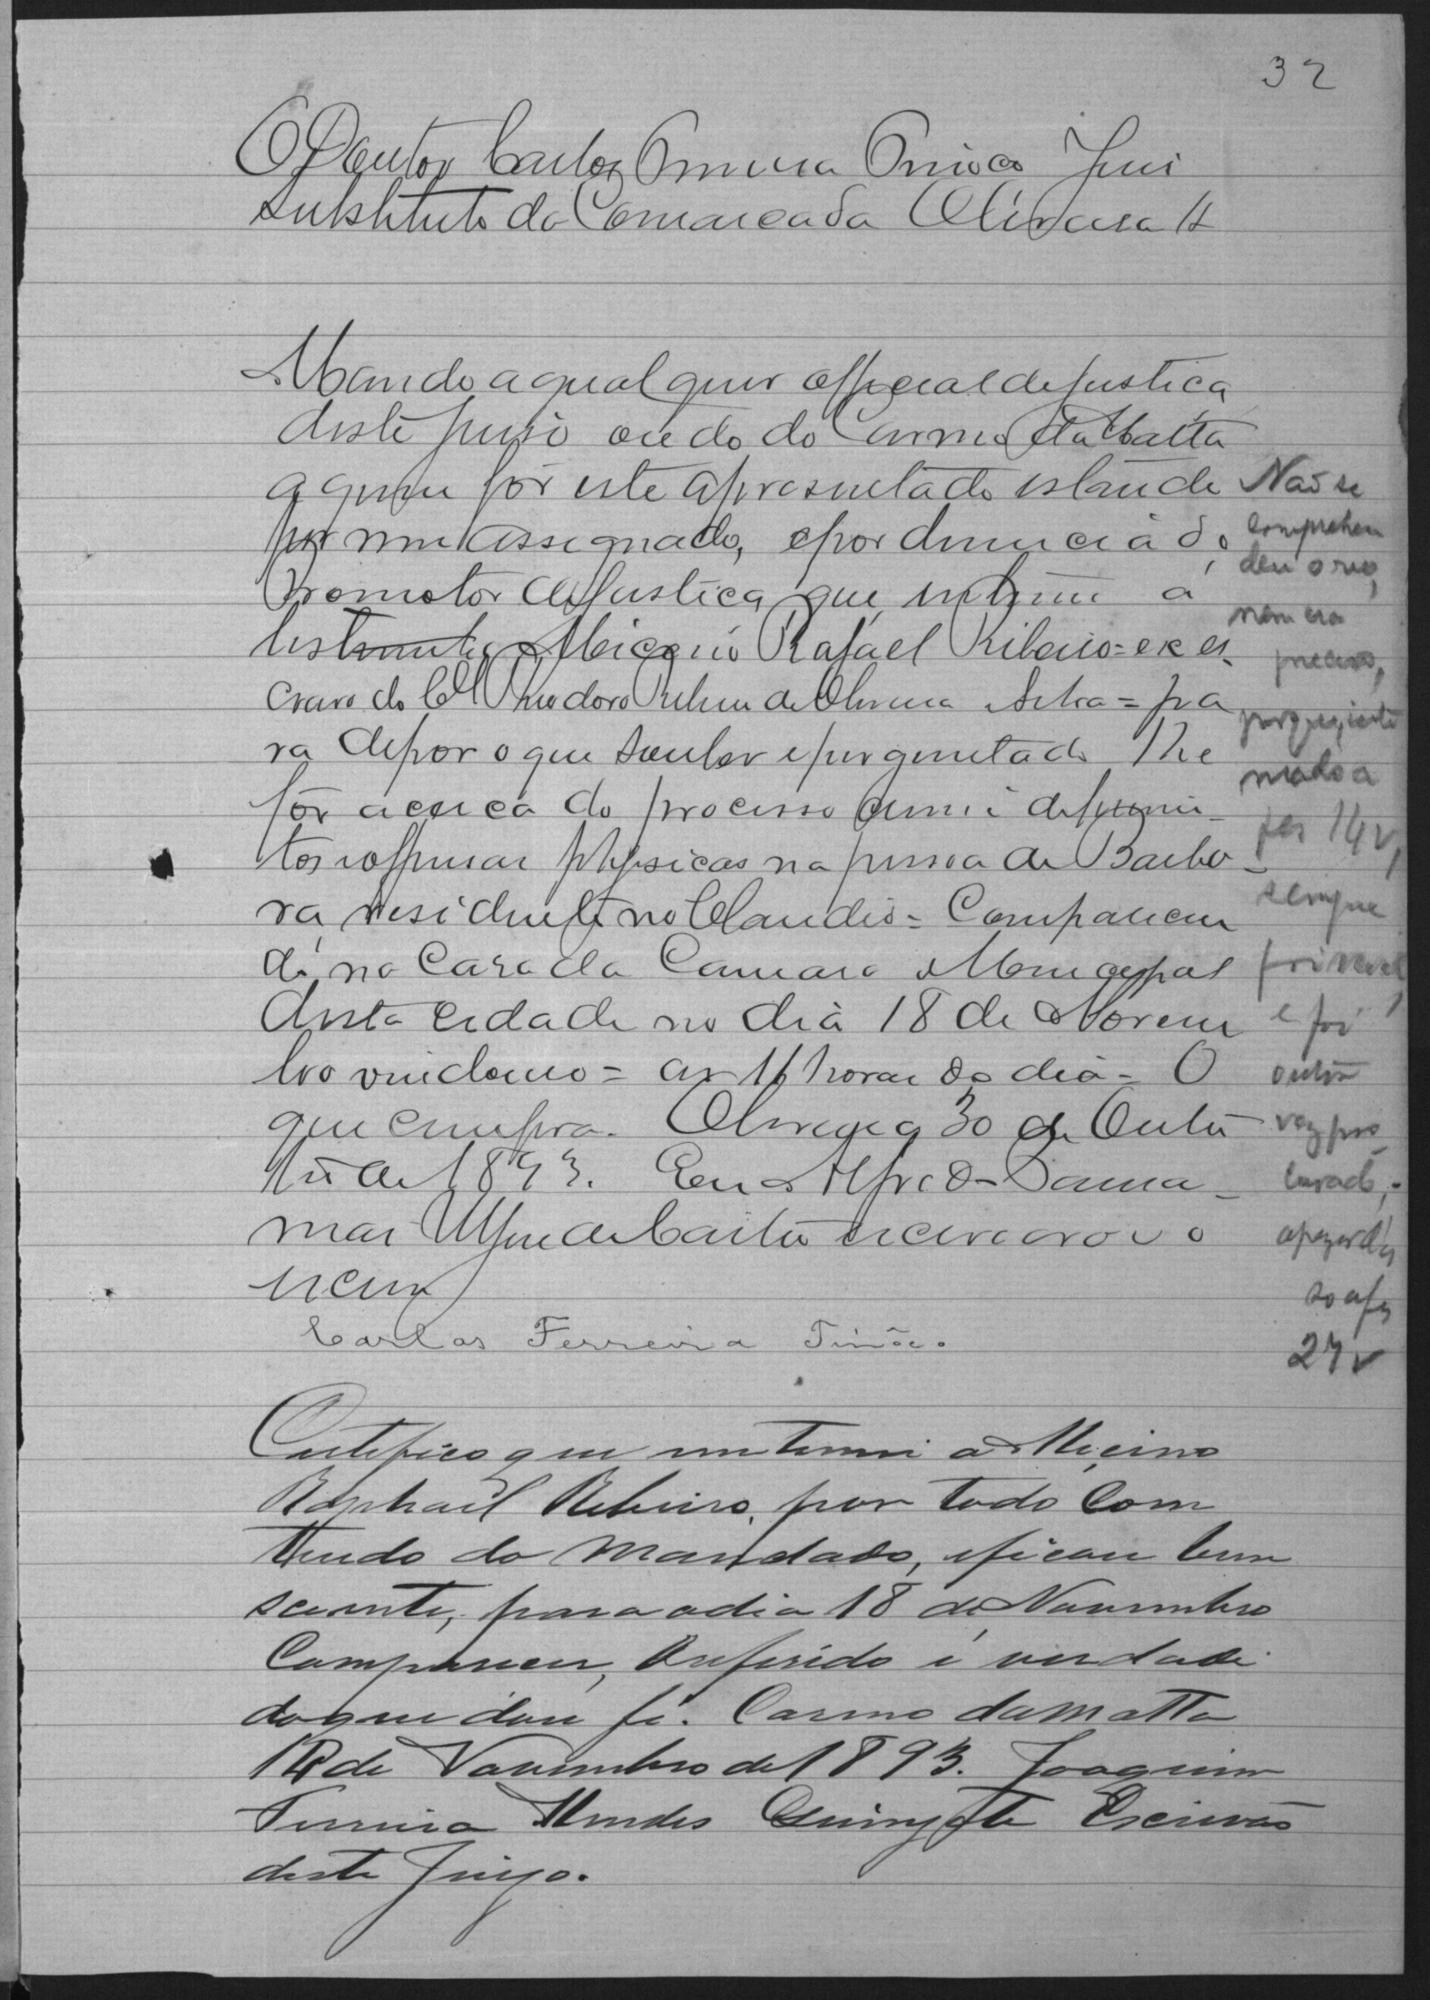 32
O Doutor Carlos Ferreira Tinôco Juis
substituto da Comarca da Oliveira &
Mando a qual quer official de justiça
deste juiso ou do do Carmo da Matta
a quem fôr este apresentado estando
por mim assignado, e por denuncia do
Promotor de Justiça que intime a
testemunha Miceno Rafael Ribeiro = ex es
cravo do Cel Theodoro Ribeiro de Oliveira Silva = pa
ra depor o que souber e perguntado lhe
fôr acerca do processo crime de ferimen
tos e offensas physicas na pessoa de Barbo
ra residente no Claudio = Comparecen
do na Casa da Camara Municipal
desta cidade no dia 18 de Novem
bro vindouro = as 11 horas do dia = O
que cumpra. Oliveira 30 de Outu
bro de 1893. Eu Alfredo
de Castro escrivão o
escrevi
Carlos Ferreira Tinôco.
Não se
comprehen
deu o reo,
nem era
preciso,
porque, inti
mado a
fls 14 v,
sempre
foi revel
e foi
outra
vez pro
curado,
apezar dis
so a fs
27 v
Certifico que intimei a Miceno
Raphael Ribeiro, por todo Com
theudo do mandado, e ficou bem
sciente, para o dia 18 de Novembro
Comparecer, O referido é verdade
do que dou fé. Carmo da Matta
14 de Novembro de 1893. Joaquim
Ferreira Mendes Escrivão
deste Juizo.